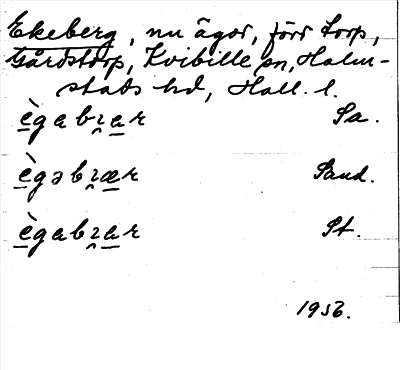 Ekeberg, nu ägor, förr torp,
Gårdstorp, Kvibille sn, Halm-
stads hd, Hall. l.
ègabɿar Sa.
ègəbɿær Sand.
ègabɿar St.
1956.